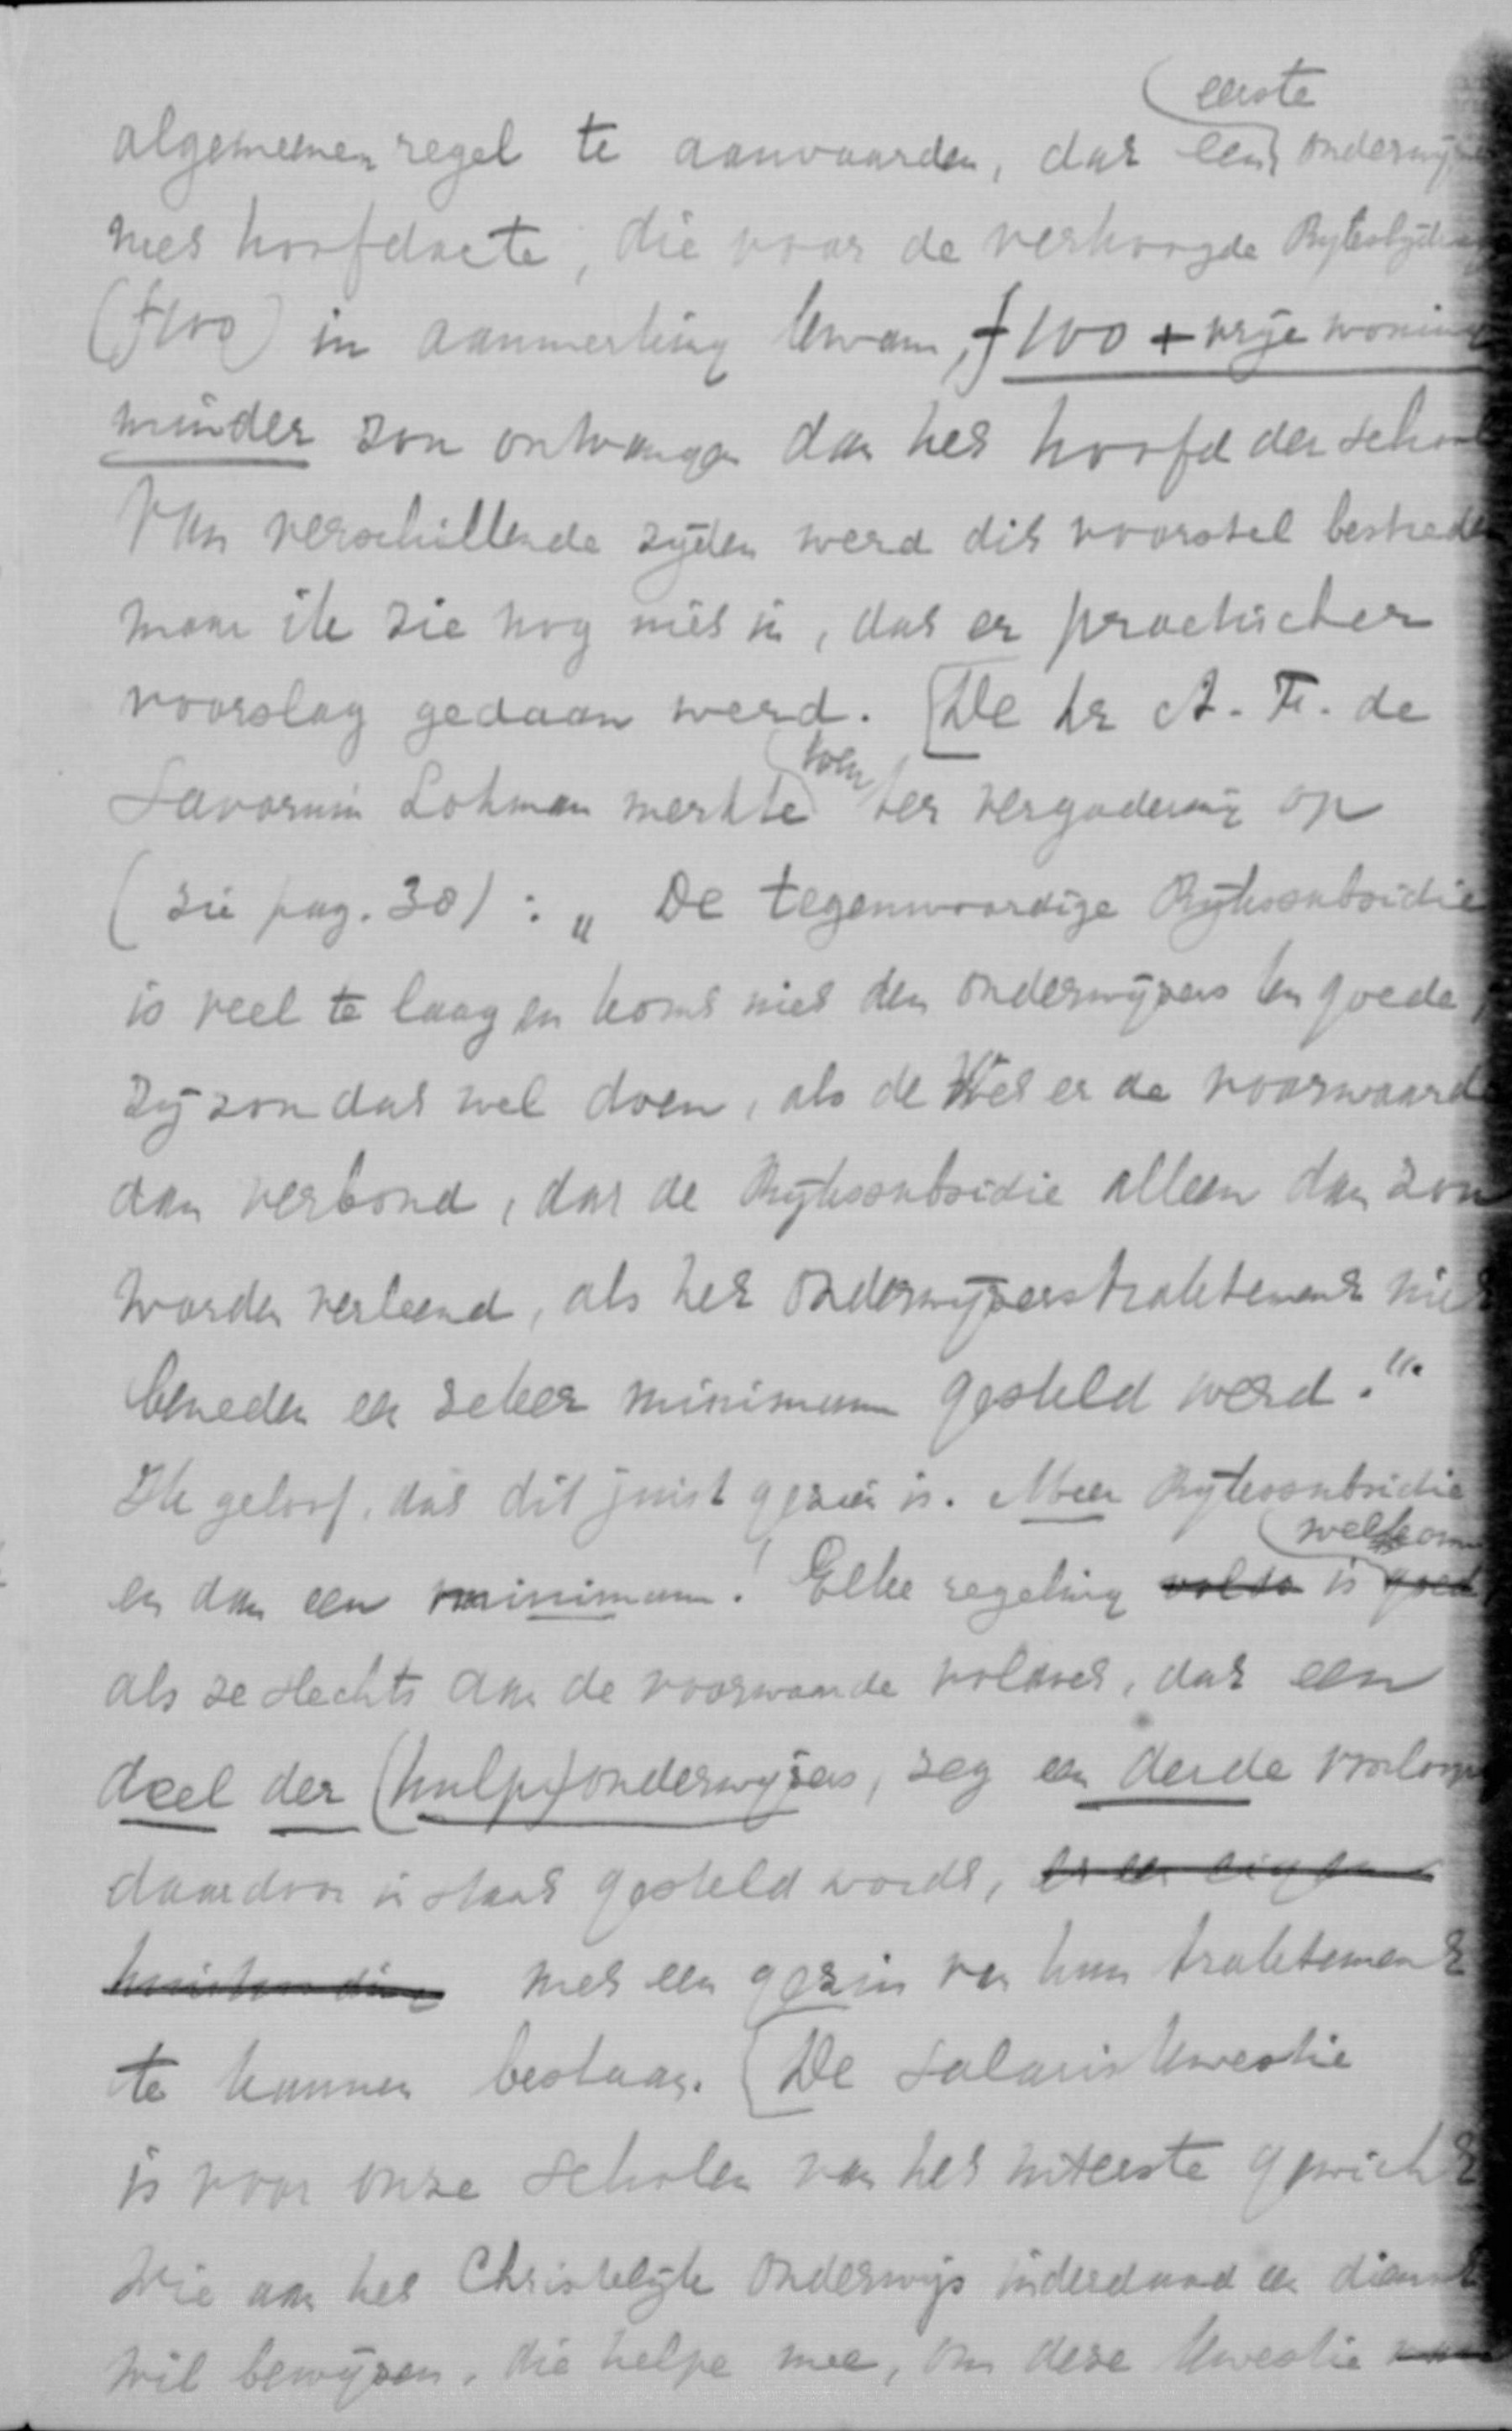 eerste
algemeenen regel te aanvaarden, dat een onderwijzer
met hoofdacte, die voor de verhoogde Rijksbijdrage
(ƒ100) in aanmerking kwam, ƒ100 + vrije woning
minder zou ontvangen dan het hoofd der school
Van verschillende zijden werd dit voorstel bestreden
maar ik zie nog niet in, dat er practischer
voorslag gedaan werd. [De hr A. F. de
toen
Savornin Lohman merkte ter vergadering op
(zie pag. 30) : „ De tegenwoordige Rijkssubsidie
is veel te laag en komt niet den onderwijzers ten goede,
zij zou dat wel doen, als de Wet er de voorwaarde
aan verbond, dat de Rijkssubsidie alleen dan zou
worden verleend, als het onderwijzerstraktement niet
beneden een zeker minimum gesteld werd."
Ik geloof, dat dit juist gezien is. Meer Rijkssubsidie
welkom
en dan een minimum! Elke regeling voldo is goed
als ze slechts aan de voorwaarde voldoet, dat een
deel der (hulp)onderwijzers, zeg een derde voorloopig
daardoor in staat gesteld wordt, er een eigen
huishouding met een gezin van hun traktement
te kunnen bestaan. [De salariskwestie
is voor onze scholen van het uiterste gewicht
Wie aan het Christelijk Onderwijs inderdaad een dienst
wil bewijzen, die helpe mee, om deze kwestie